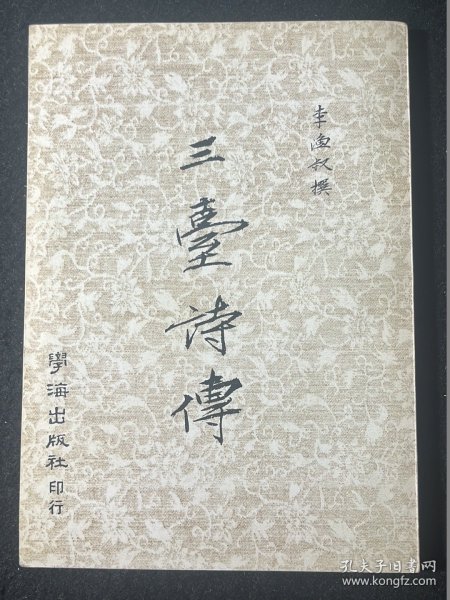 李漁叔撰
三臺詩傳
學海出版社印行
孔夫子旧书网
www.kongfz.com